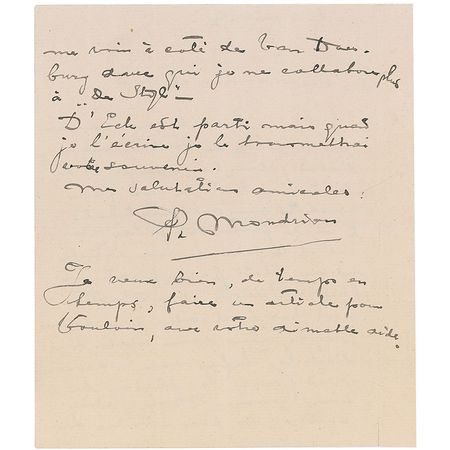 me vois à côté de Van Does-
burg avec qui je ne collabore plus
à "De Styl"
D'Eck est parti mais quand
je l'écrirai je le transmettrai
votre souvenir.
Mes salutations amicales:
Pt Mondrian
Je veux bien, de temps en
temps, faire un article pour
Vouloir, avec votre aimable aide.